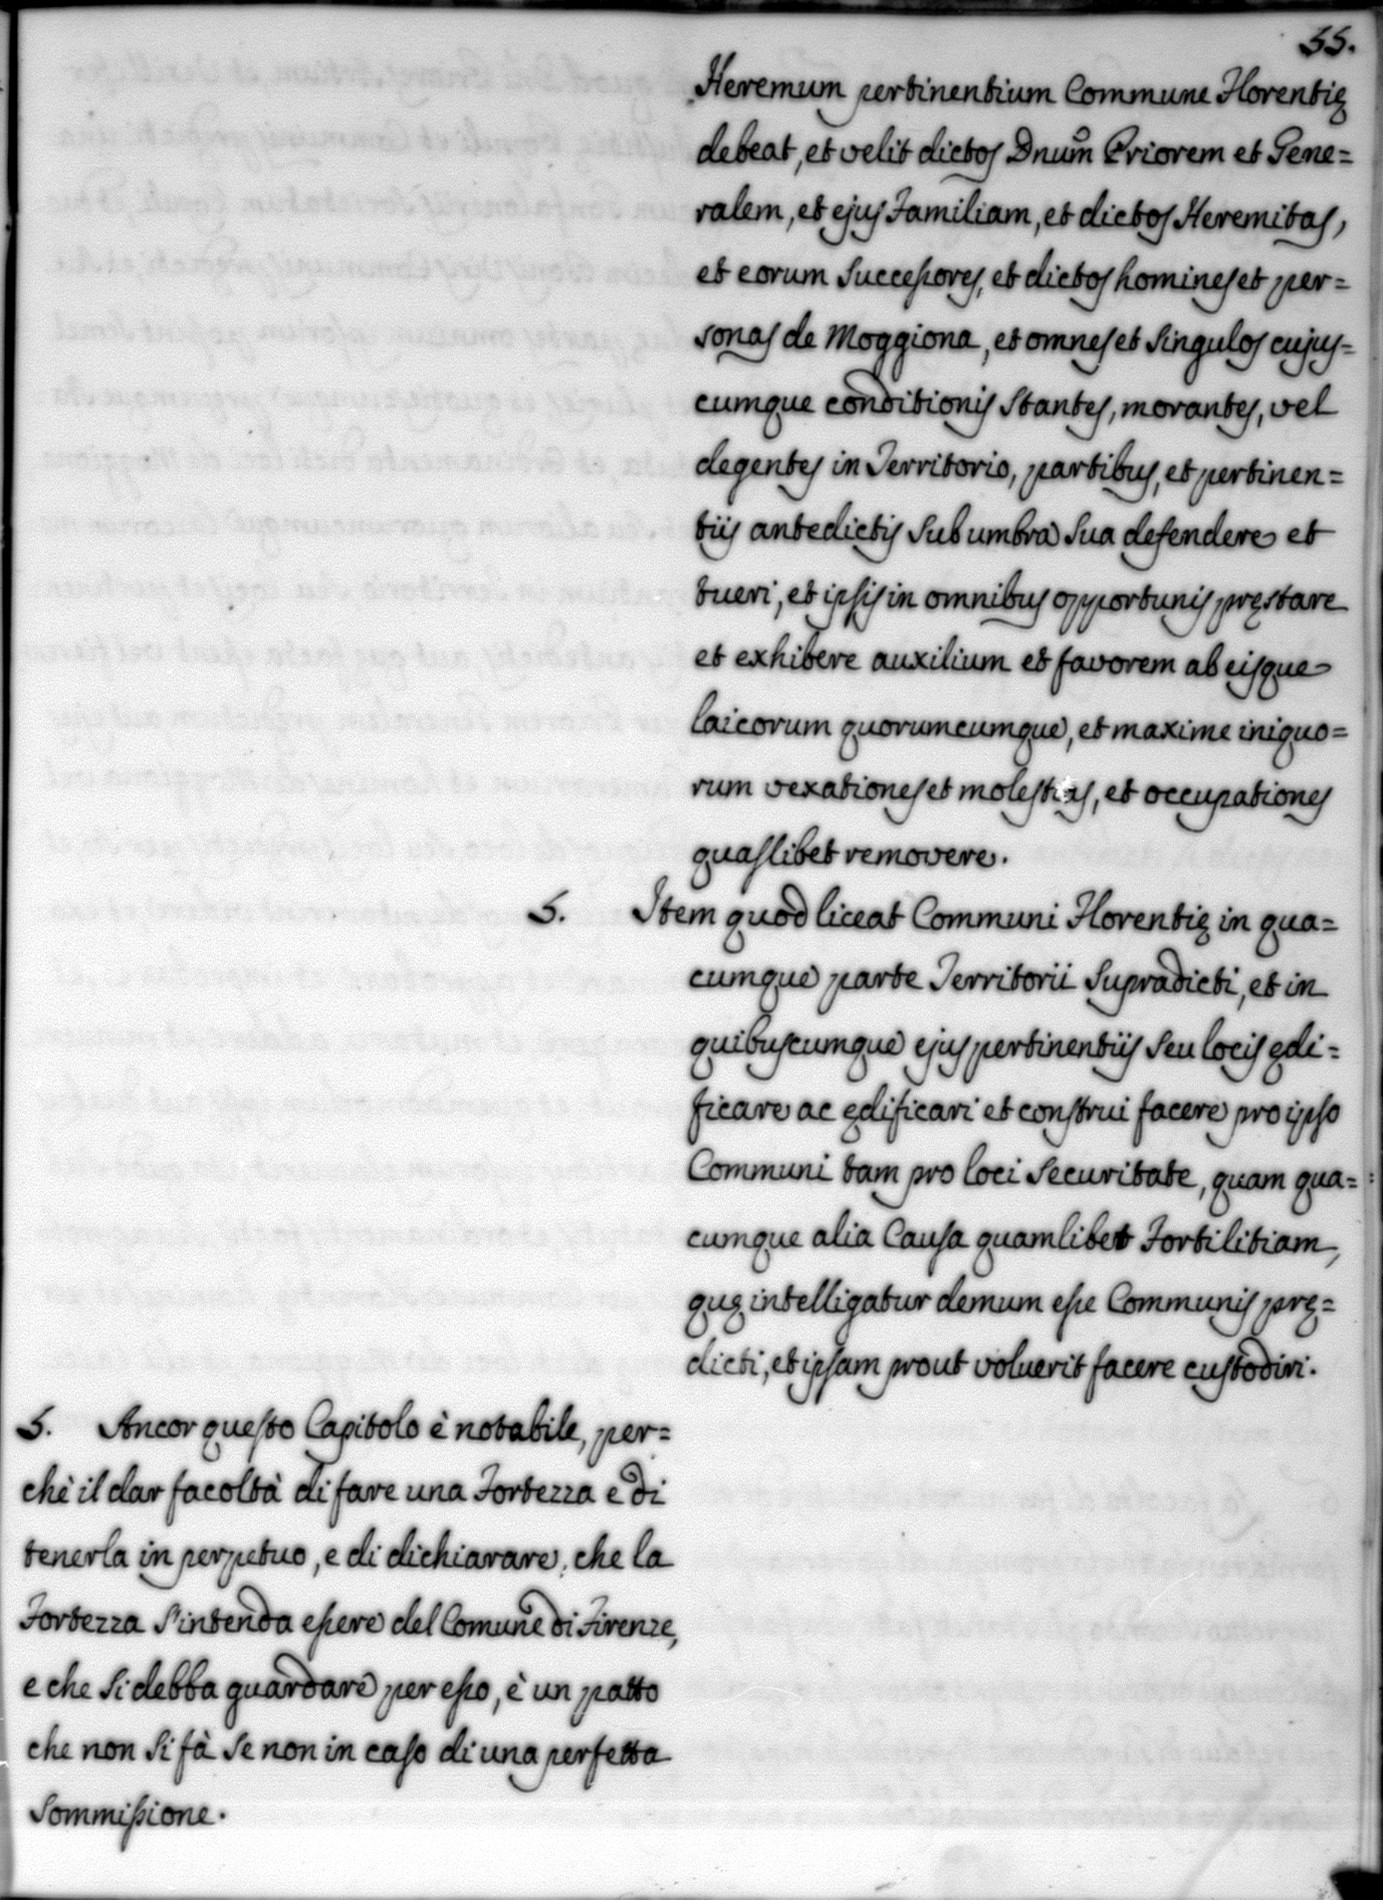 55.
Heremum pertinentium Commune Florentię
debeat, et velit dictos Dnum̃ Priorem et Gene=
ralem, et ejus Familiam, et dictos Heremitas,
et eorum Successores, et dictos homines et per=
sonas de Moggiona, et omnes et singulos cujus=
cumque conditionis stantes, morantes, vel
degentes in Territorio, partibus, et pertinen=
tiis antedictis sub umbra sua defendere et
tueri, et ipsis in omnibus opportunis pręstare
et exhibere auxilium et favorem ab eisque
laicorum quorumcumque, et maxime iniquo=
rum vexationes et molestias, et occupationes
quaslibet removere.
5. Item quod liceat Communi Florentię in qua=
cumque parte Territorii supradicti, et in
quibuscumque ejus pertinentiis seu locis ędi=
ficare ac ędificari et construi facere pro ipso
Communi tam pro loci securitate, quam qua=
cumque alia Causa quamlibet Fortilitiam,
quę intelligatur demum esse Communis prę=
dicti, et ipsam prout voluerit facere custodiri.
5. Ancor questo Capitolo è notabile, per=
chè il dar facoltà di fare una Fortezza e di
tenerla in perpetuo, e di dichiarare, che la
Fortezza s'intenda essere del Comune di Firenze,
e che si debba guardare per esso, è un patto
che non si fà se non in caso di una perfetta
sommissione.